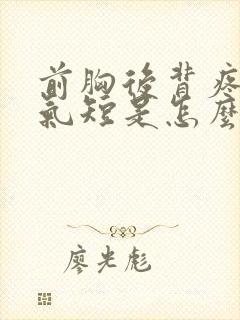 前胸後背疼
氣短是怎麼
廖光彪